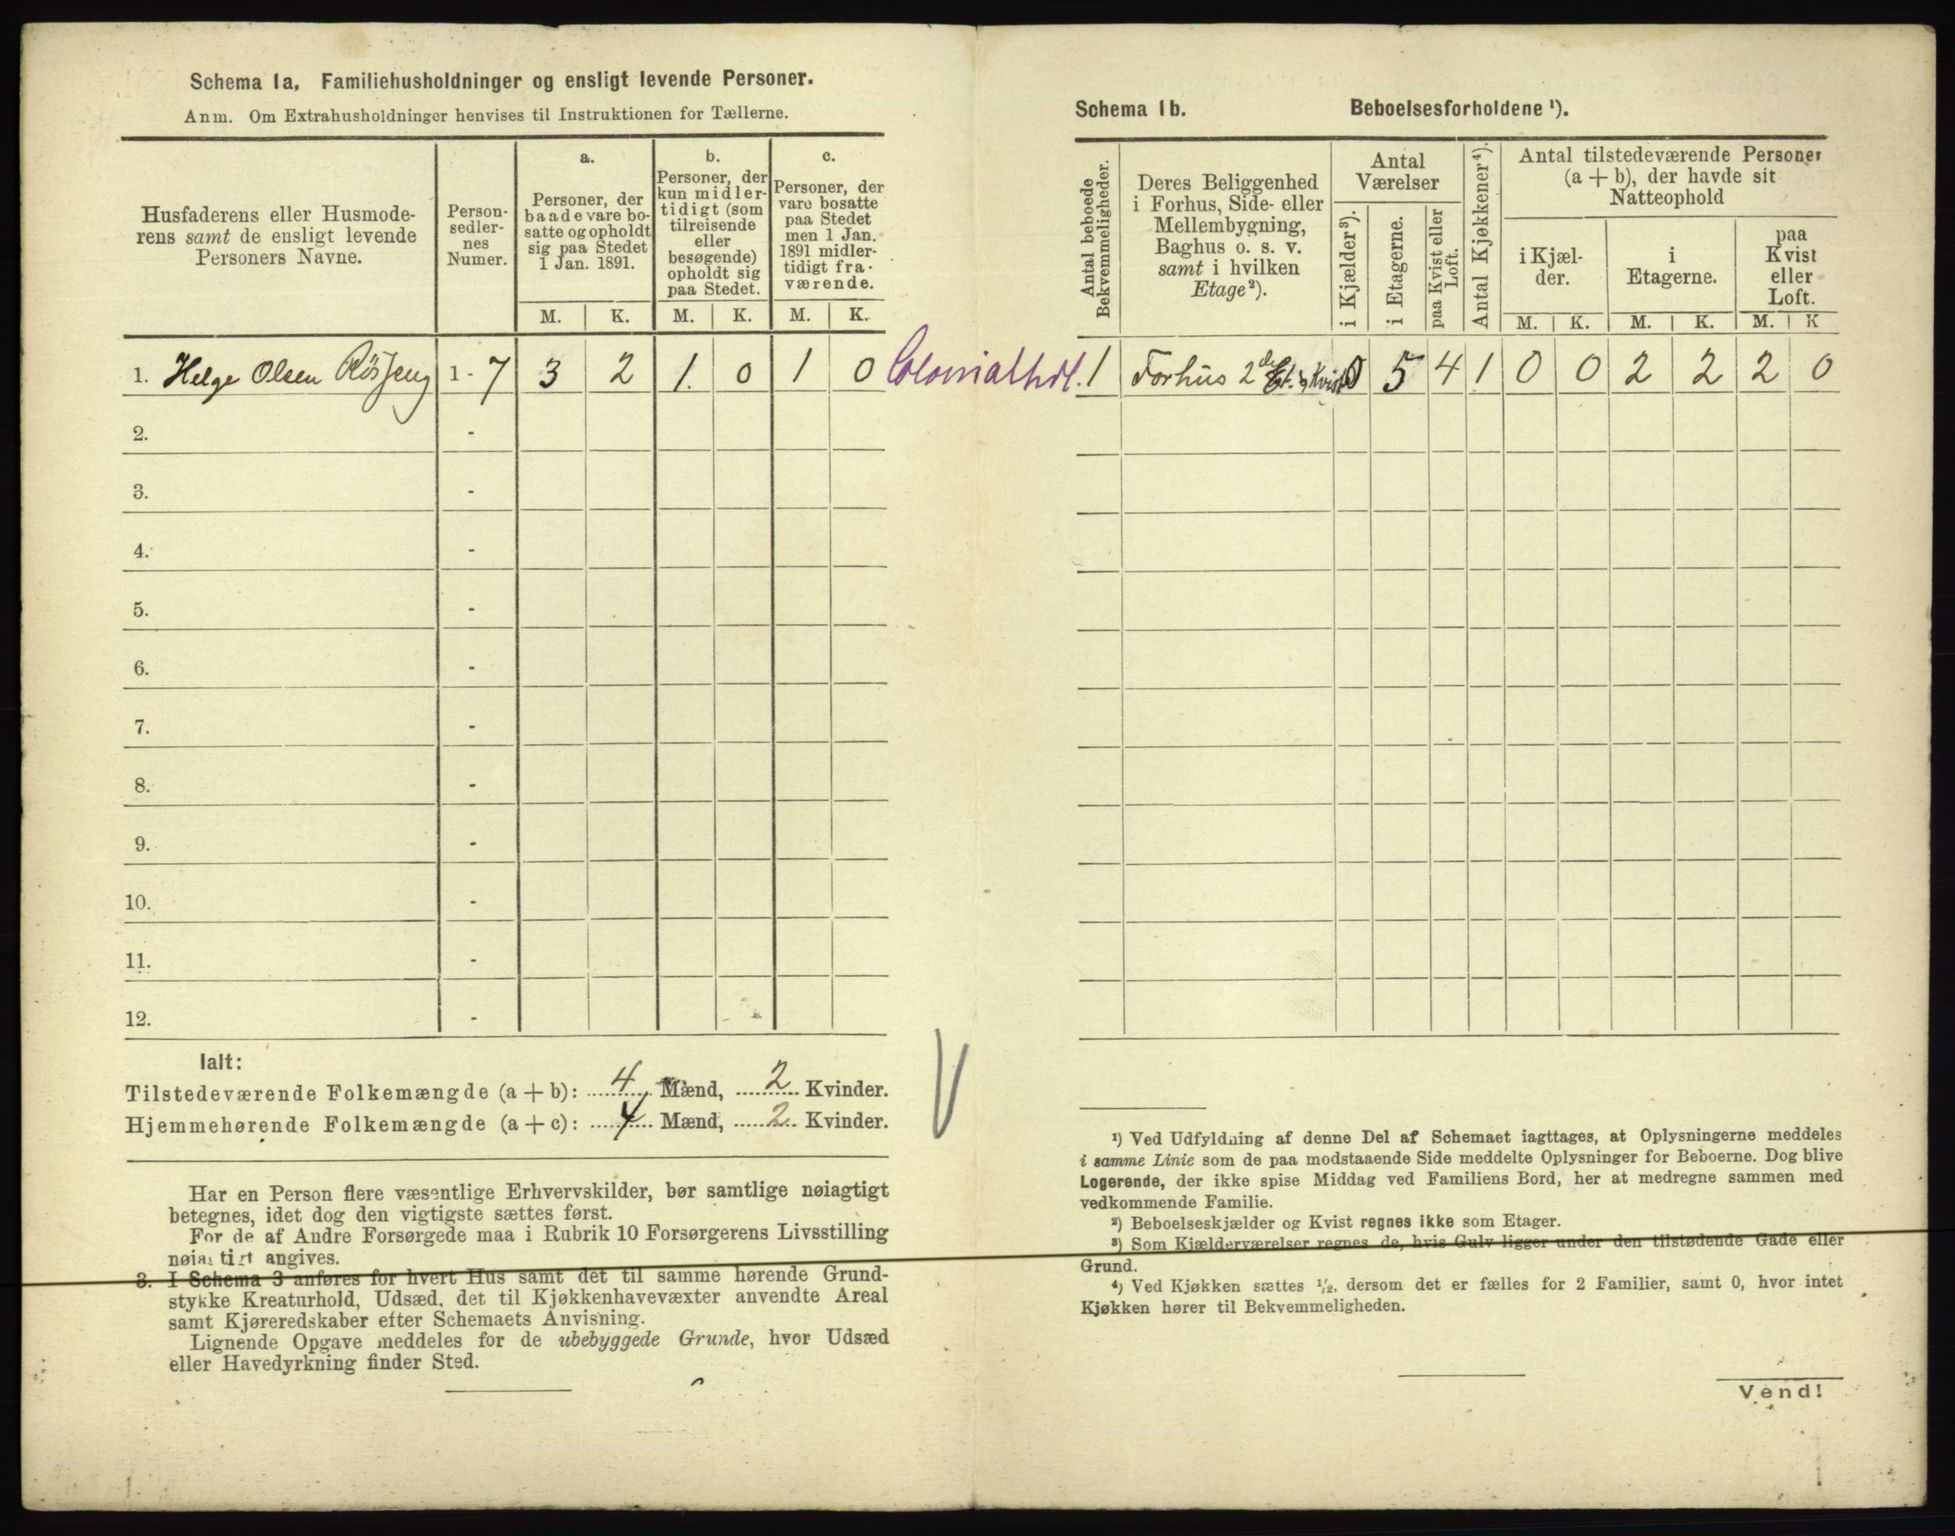 Schema 1a, Familiehusholdninger og ensligt levende Personer.
Anm. Om Extrahusholdninger henvises til Instruktionen for Tællerne.
Husfaderens eller Husmode-
rens samt de ensligt levende
Personers Navne.
Person-
sedler-
nes
Numer.
a.
Personer, der
baade vare bo-
satte og opholdt
sig paa Stedet
1 Jan. 1891.
b.
Personer, der
kun midler-
tidigt (som
tilreisende
eller
besøgende)
opholdt sig
paa Stedet.
c.
Personer, der
vare bosatte
paa Stedet
men 1 Jan.
1891 midler-
tidigt fra-
værende.
M. K. M. K. M. K.
1. Helge Olsen Rösjeng 1 - 7 3 2 1. 0 1 0 Colonialhdl.
2. -
3. -
4. -
5. -
6. -
7. -
8. -
9. -
10. -
11. -
12. -
Ialt:
Tilstedeværende Folkemængde (a + b): 4 Mænd, 2 Kvinder.
Hjemmehørende Folkemængde (a + c): 4 Mænd, 2 Kvinder.
Har en Person flere væsentlige Erhvervskilder, bør samtlige nøiagtigt
betegnes, idet dog den vigtigste sættes først.
For de af Andre Forsørgede maa i Rubrik 10 Forsørgerens Livsstilling
nøiagtigt angives.
3. I Schema 3 anføres for hvert Hus samt det til samme hørende Grund-
stykke Kreaturhold, Udsæd, det til Kjøkkenhavevæxter anvendte Areal
samt Kjøreredskaber efter Schemaets Anvisning.
Lignende Opgave meddeles for de ubebyggede Grunde, hvor Udsæd
eller Havedyrkning finder Sted.
Schema 1b. Beboelsesforholdene ¹).
Antal beboede
Bekvemmeligheder.
Deres Beliggenhed
i Forhus, Side- eller
Mellembygning,
Baghus o. s. v.
samt i hvilken
Etage²).
Antal
Værelser
i Kjælder³).
i Etagerne.
paa Kvist eller
Loft.
Antal Kjøkkener⁴).
Antal tilstedeværende Personer
(a + b), der havde sit
Natteophold
i Kjæl-
der.
i
Etagerne.
paa
Kvist
eller
Loft.
M. K. M. K. M. K
1 Forhus 2de Et. og Kvist 0 5 4 1 0 0 2 2 2 0
¹) Ved Udfyldning af denne Del af Schemaet iagttages, at Oplysningerne meddeles
i samme Linie som de paa modstaaende Side meddelte Oplysninger for Beboerne. Dog blive
Logerende, der ikke spise Middag ved Familiens Bord, her at medregne sammen med
vedkommende Familie.
²) Beboelseskjælder og Kvist regnes ikke som Etager.
³) Som Kjælderværelser regnes de, hvis Gulv ligger under den tilstødende Gade eller
Grund.
⁴) Ved Kjøkken sættes ½, dersom det er fælles for 2 Familier, samt 0, hvor intet
Kjøkken hører til Bekvemmeligheden.
Vend!